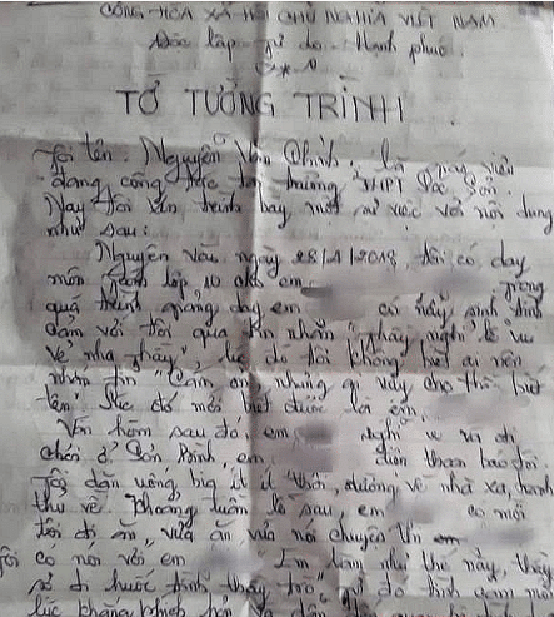 CỘNG HÒA XÃ HỘI CHỦ NGHĨA VIỆT NAM
Độc lập tự do hạnh phúc
TỜ TƯỜNG TRÌNH
Tôi tên: Nguyễn Văn là giáo viên
đang công tác tại trường THPT Sóc Sơn.
Nay tôi xin trình bày một sự việc với nội dung
như sau:
Nguyên vào ngày 28/1/2018, tôi có dạy
môn lớp 10 cho em trong
quá trình giảng dạy em có nảy sinh tình
cảm với tôi qua tin nhắn "thầy nghỉ lễ
về nhà thầy" lúc đó tôi không biết ai nên
nhắn tin "Cảm ơn nhưng gì vậy cho tôi biết
tên". Lúc đó mới biết được là em
Vài hôm sau đó, em nghỉ và đi
chơi ở Sơn Bình, em điện thoại báo tôi.
Tôi dặn uống bia ít ít thôi, đường về nhà xa, tranh
thủ về. Khoảng tuần lễ sau, em có mời
tôi đi ăn, vừa ăn vừa nói chuyện em
Tôi có nói với em "Em làm như thế này, thầy
sợ đi trước tình thầy trò" vì do tình cảm một
lúc